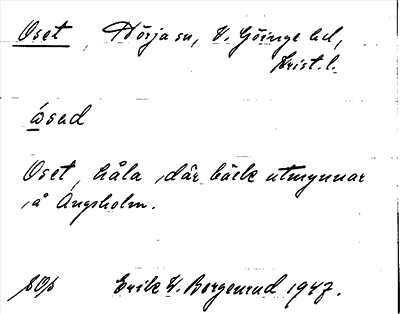 Oset, Hörja sn, V. Göinge hd,
Krist. l.
åsed
Oset, håla, där bäck utmynnar
å Ängsholm.
Erik W. Borgenrud 1947.